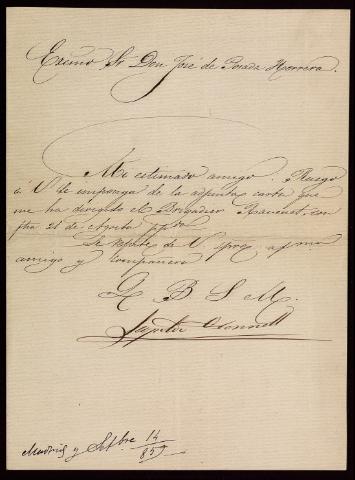 Excmo Sr Don José de Posada Herrera.
Mi estimado amigo: Ruego
á V. se imponga de la adjunta carta que
me ha dirigido el Brigadier con
fha 21 de Agosto ppdo.
Se repite de V. afmo
amigo y compañero
Q B S M.
O'Donnell
Madrid y Setbre 14/85